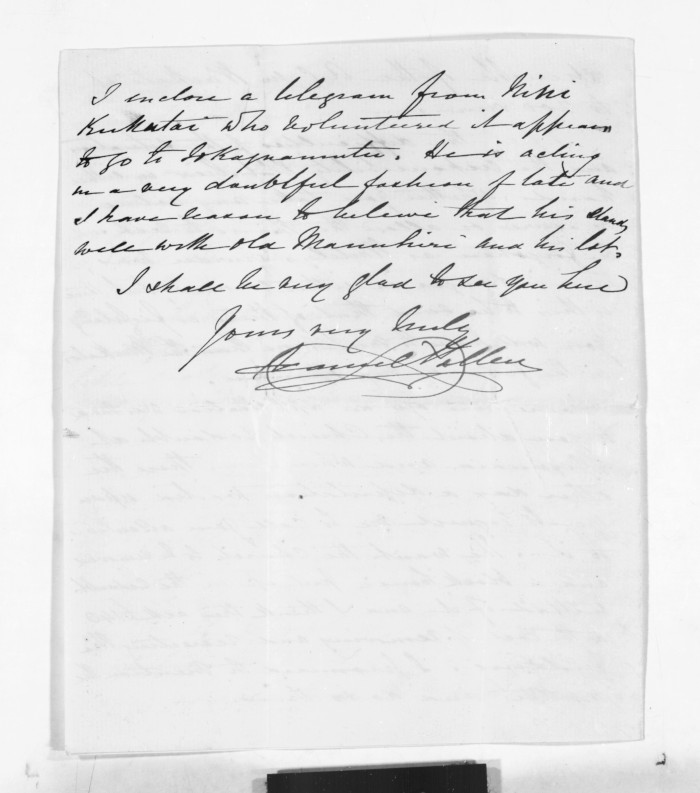 I enclose a telegram from Wiki
Kukutai who volunteered it appears
to go to Tokaanamutu. He is acting
in a very doubtful fashion of late and
I have reason to believe that his stands
well with old Manuhiri and his lot.
I shall be very glad to see you here
Yours very truly
Daniel Pollen